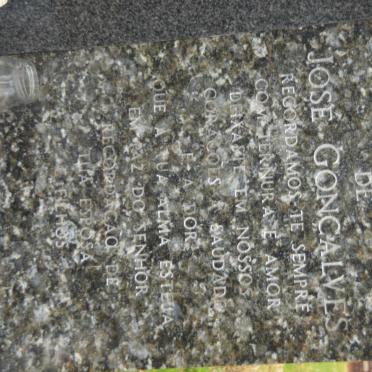 DE
JOSÉ GONÇALVES
RECORDAMOS-TE SEMPRE
COM TERNURA E AMOR
DEIXASTE EM NOSSOS
CORAÇÕES A SAUDADE
E A DOR
QUE A TUA ALMA ESTEJA
EM PAZ DO SENHOR
RECORDAÇÃO DE
TUA ESPOSA
E FILHOS